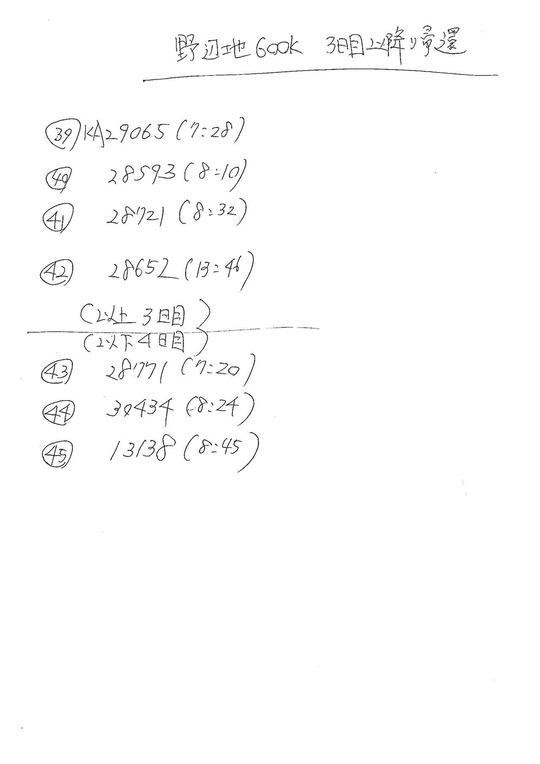 野辺地600K 3日目以降り帰還
㊴ KA29065 (7:28)
㊵ 28593 (8:10)
㊶ 28721 (8:32)
㊷ 28652 (13:46)
(以上 3日目)
(以下4日目)
㊸ 28771 (7:20)
㊹ 30434 (8:24)
㊺ 13138 (8:45)